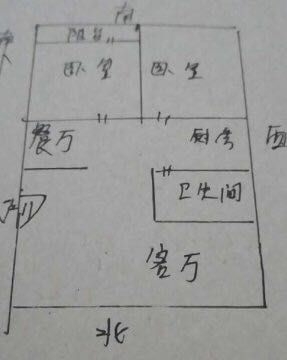 南
阳台
卧室 卧室
餐厅 厨房 西
卫生间
客厅
北